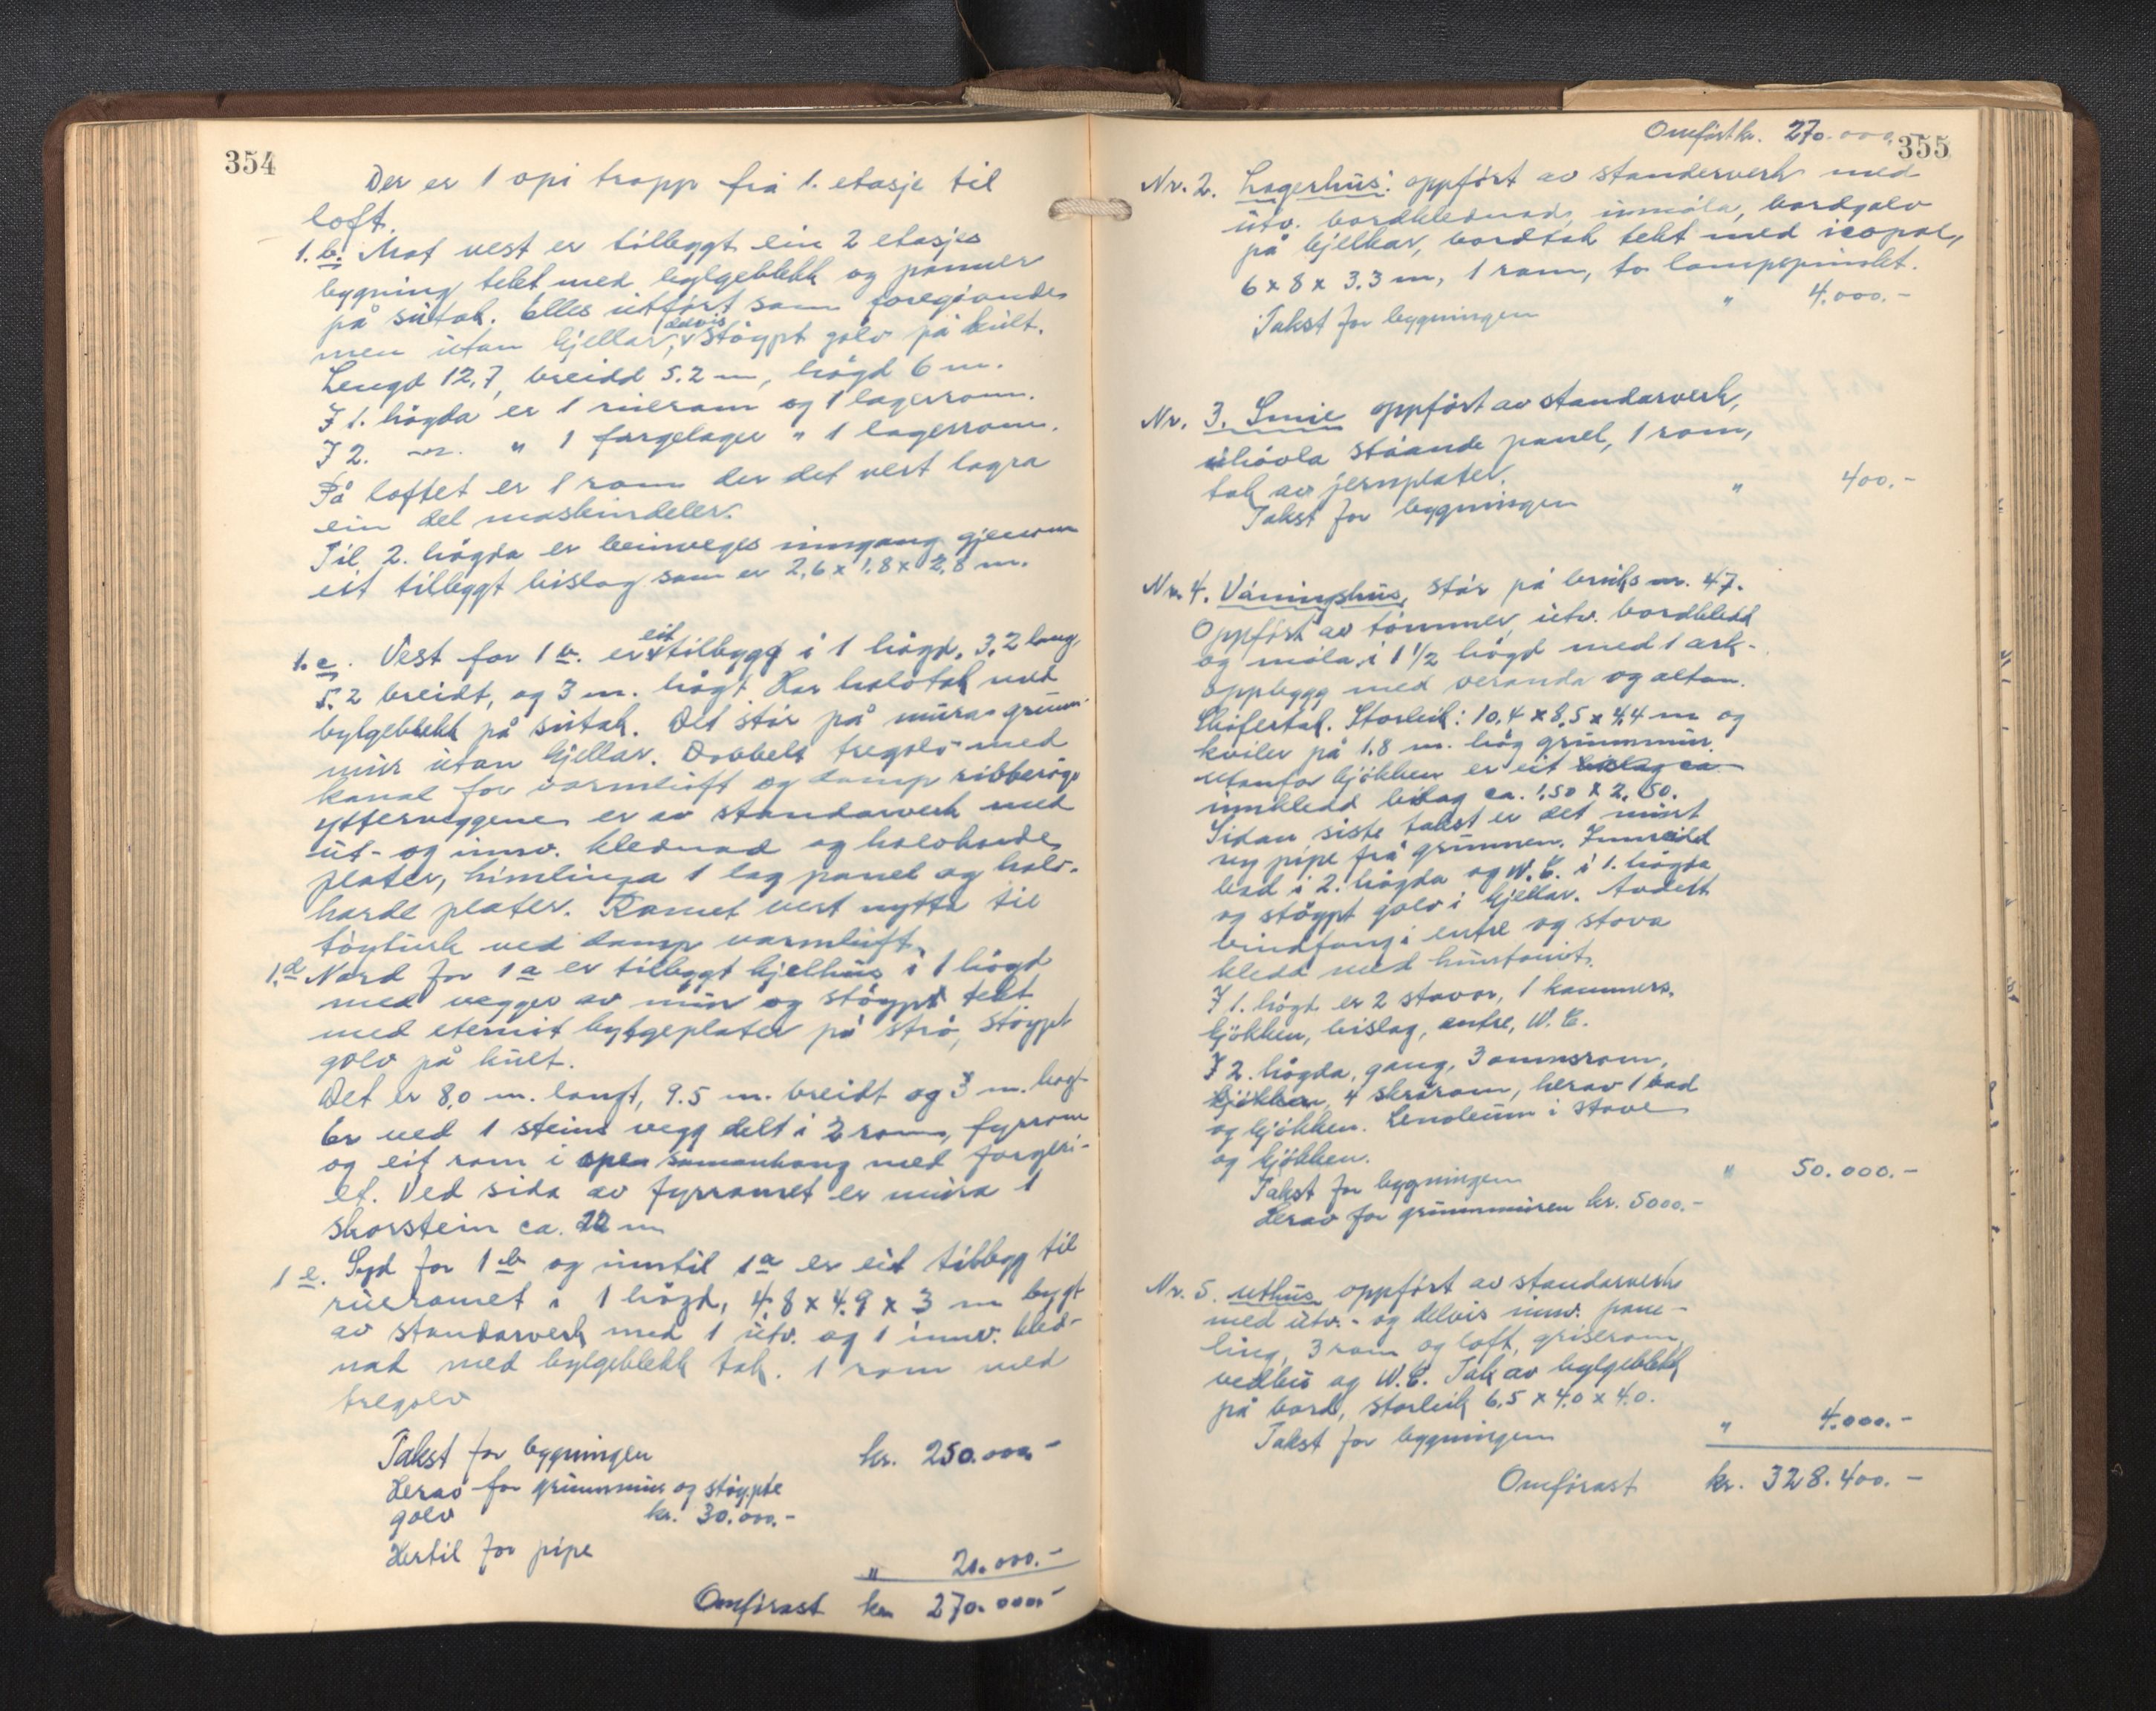 354
Der er 1 opi trapp frå 1. etasje til
loft.
1.b. Mot vest er tilbyggt ein 2 etasjes
bygning tekt med bylgeblekk og panner
på sutak. Elles utført som foregåande
men utan kjellar, delvis støypt golv på kult.
Lengd 12,7, breidd 5.2 m, høgd 6 m.
I 1. høgda er 1 ruerom og 1 lagerrom.
I 2. -"- " 1 fargelager " 1 lagerrom.
På loftet er 1 rom der det vert lagra
ein del maskindeler.
Til 2. høgda er beinveges inngang gjenom
eit tilbyggt bislag som er 2,6 x 1,8 x 2,8 m.
1.c. Vest for 1 b. er eit tilbygg i 1 høgd, 3,2 lang,
5.2 breidt, og 3 m. høgt. Har halvtak med
bylgeblekk på sutak. Det står på mura grunn-
mur utan kjellar. Dobbelt tregolv med
kanal for varmluft og damp ribberøyr
ytterveggene er av standarverk med
ut- og innv. klednad og halvharde
plater, himlinga 1 lag panel og halv-
harde plater. Romet vert nytta til
tøyturk ved damp varmluft.
1.d Nord for 1 a er tilbyggt kjelhus i 1 høgd
med vegger av mur og støypt tekt
med eternit bylgeplater på strø, støypt
golv på kult.
Det er 8,0 m. langt, 9.5 m. breidt og 3 m. høgt
Er ved 1 steins vegg delt i 2 rom, fyrrom
og eit rom i open samanhang med fargeri-
et. Ved sida av fyrromet er mura 1
skorstein ca. 22 m
1 e. Syd for 1 b og inntil 1 a er eit tilbygg til
rueromet i 1 høgd, 4.8 x 4.9 x 3 m bygt
av standarverk med 1 utv. og 1 innv. kled-
nad med bylgeblekk tak. 1 rom med
tregolv
Takst for bygningen kr. 250.000.-
Herav for grunnmur og støypte
golv kr. 30.000.-
Hertil for pipe " 20.000.-
Omførast kr 270.000.-
Omført kr. 270.000.
355
Nr. 2. Lagerhus: oppført av standerverk med
utv. bordklednad, inmåla, bordgolv
på bjelkar, bordtak tekt med icopal,
6 x 8 x 3.3 m, 1 rom, to lampepunkt.
Takst for bygningen " 4.000.-
Nr. 3. Smie oppført av standarverk,
uhøvla ståande panel, 1 rom,
tak av jernplater.
Takst for bygningen " 400.-
Nr. 4. Våningshus, står på bruks nr. 47.
Oppført av tømmer, utv. bordkledd
og måla, i 1 1/2 høgd med 1 ark-
oppbygg med veranda og altan.
Skifertak. Storleik: 10,4 x 8,5 x 4,4 m og
kviler på 1.8 m. høg grunnmur.
Utanfor kjøkken er eit bislag ca
innkledd bislag ca. 1,50 x 2,50.
Sidan siste takst er det murt
ny pipe frå grunnen. Innreidd
bad i 2. høgda og W.C. i 1. høgda
og støypt golv i kjellar. Avdelt
vindfang i entre og stova
kledd med huntonit.
I 1. høgd er 2 stovor, 1 kammers,
kjøkken, bislag, entre, W.C.
I 2. høgda, gang, 3 omnsrom,
kjøkken, 4 skrårom, herav 1 bad
og kjøkken. Lenoleum i stove
og kjøkken.
Takst for bygningen " 50.000.-
Herav for grunnmuren kr. 5000.-
Nr. 5. Uthus oppført av standarverk
med utv.- og delvis innv. pane-
ling, 3 rom og loft, griserom,
vedbu og W.C. Tak av bylgeblekk
på bord, storleik 6,5 x 4.0 x 4.0.
Takst for bygningen " 4.000.-
Omførast kr. 328.400.-